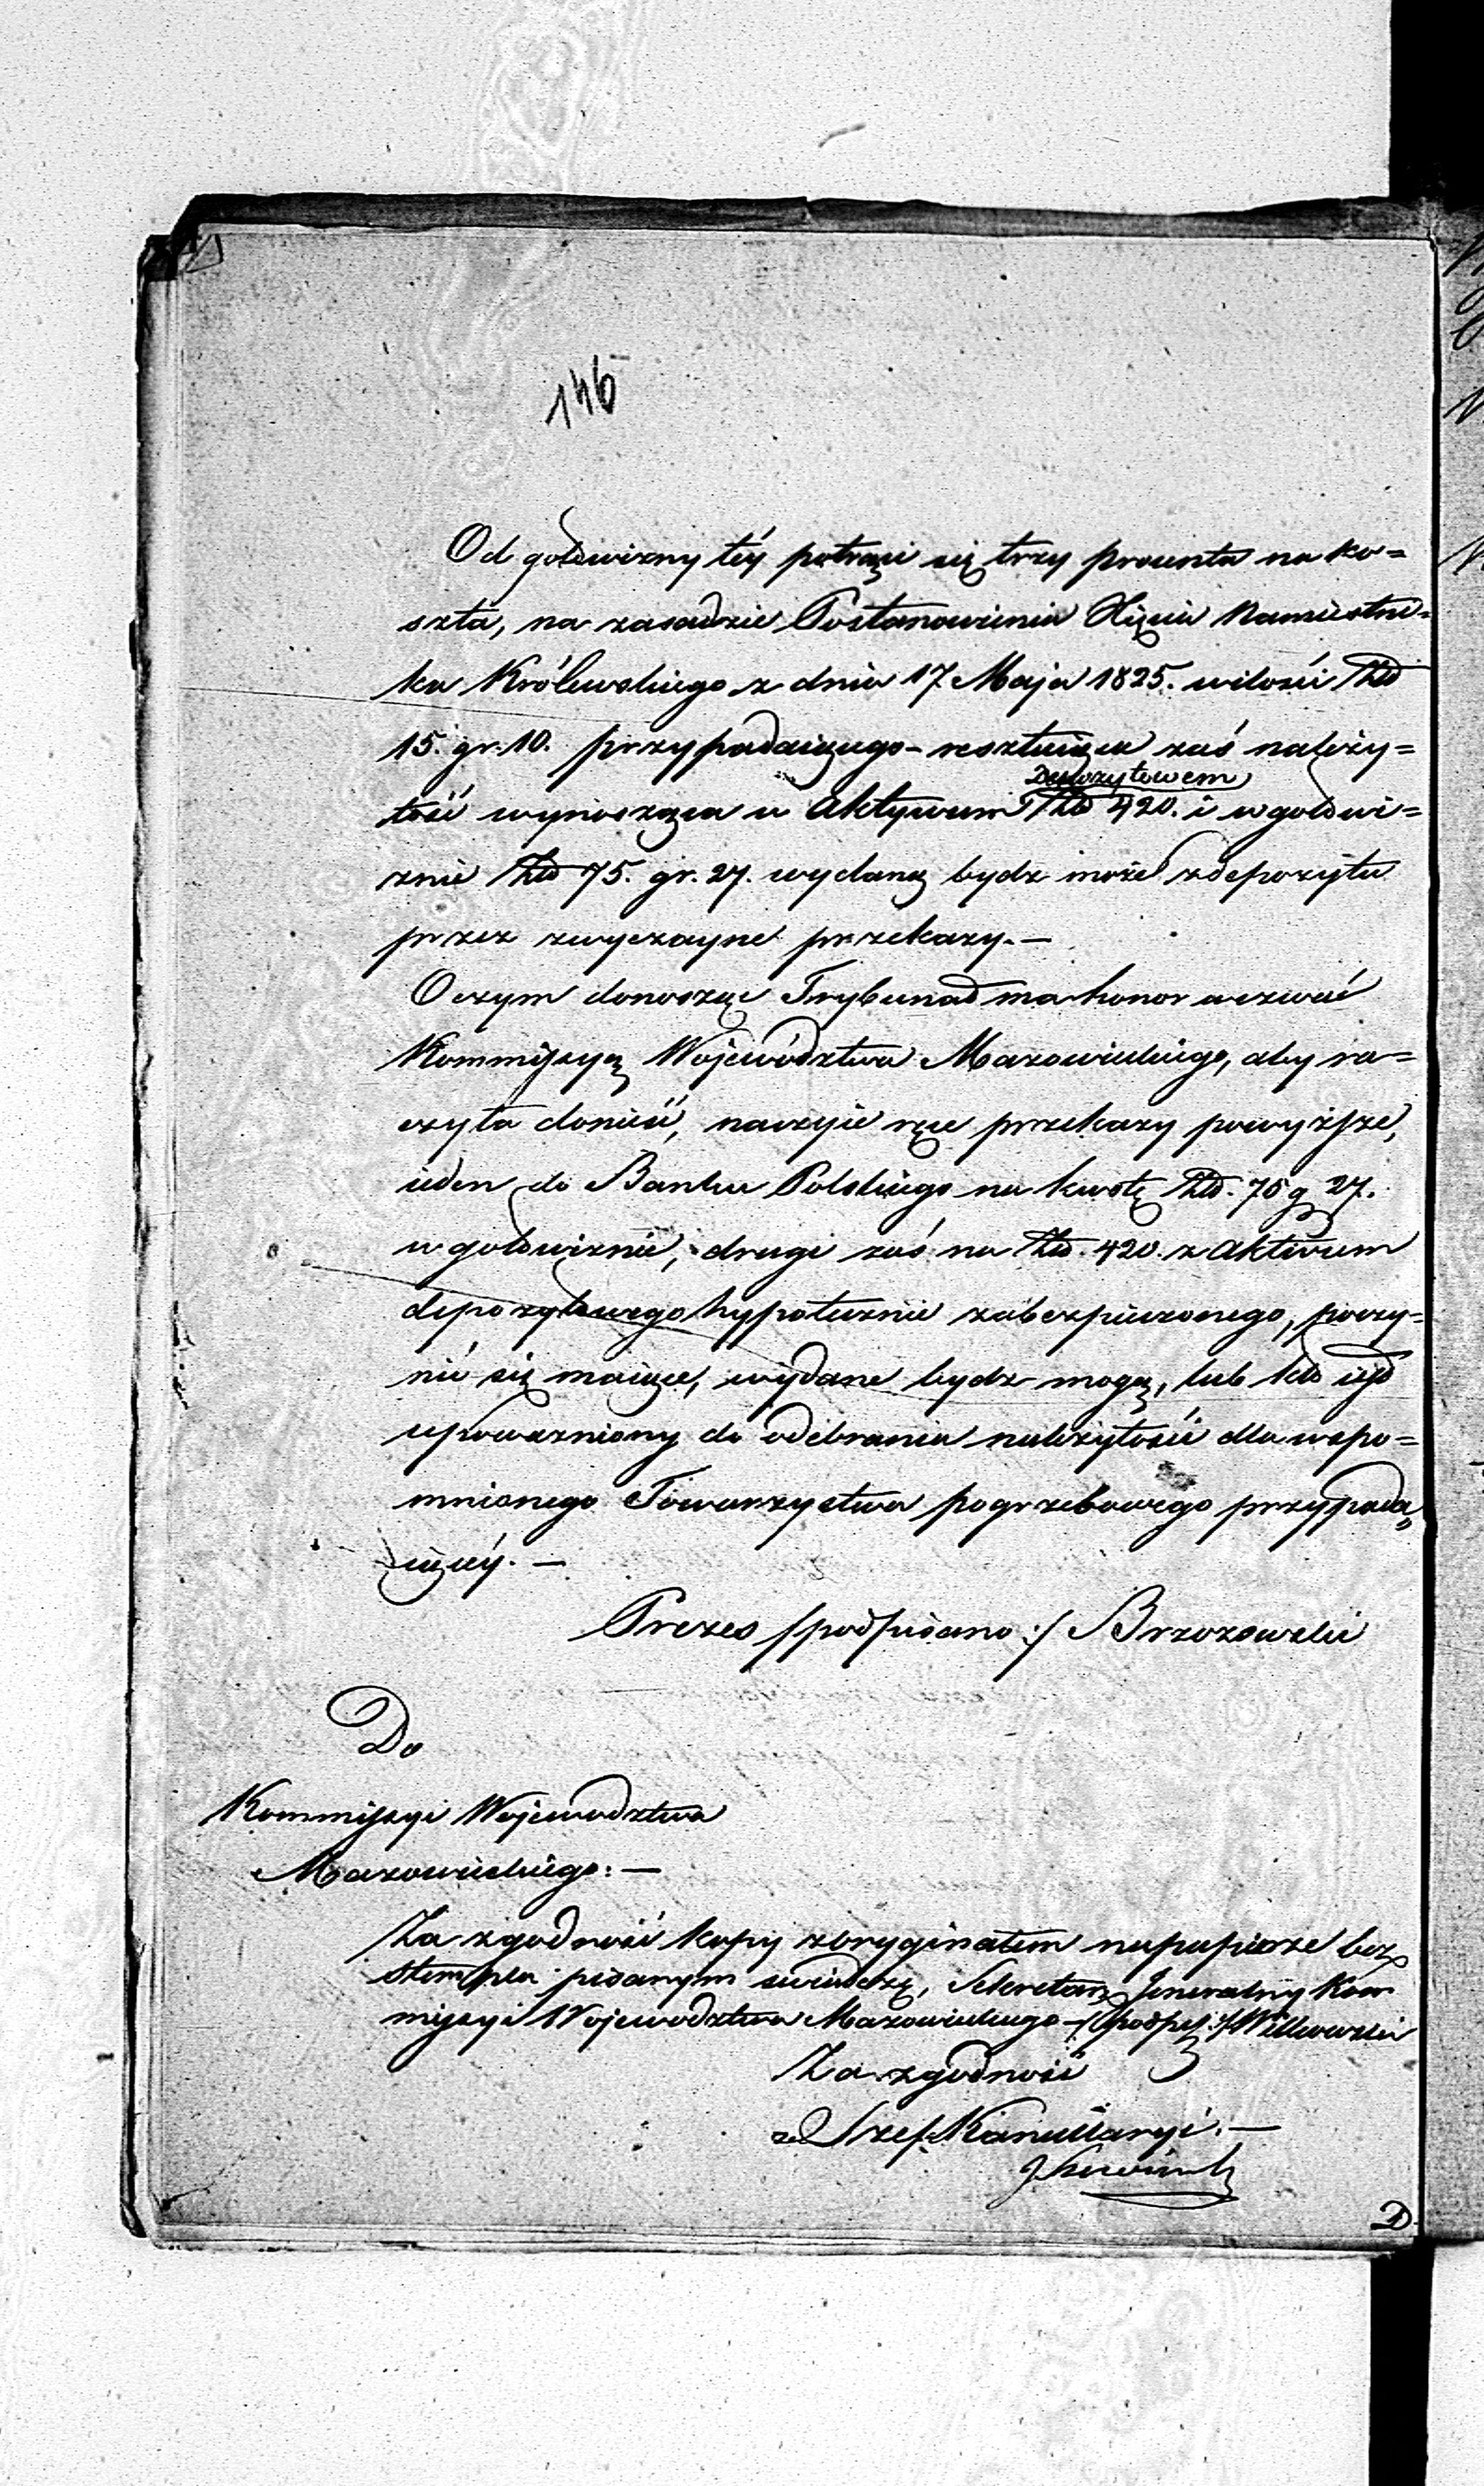 146
Od gotowizny téy potrąci się trzy procenta na ko=
szta, na zasadzie Postanowienia Xięcia Namiestni=
ka Królewskiego z dnia 17 Maja 1825. w ilości Złł
15. gr. 10. przypadaiącego – resztuiąca zaś należy=
Depozytowem
tość wynosząca w Aktywum Złł 420. i w gotowi=
znie Złł 75. gr. 27. wydaną bydz może z depozytu
przez zwyczayne przekazy. —
O czym donosząc Trybunał ma honor wezwać
Kommissyą Województwa Mazowieckiego, aby ra=
czyła donieść, na czyie ręce przekazy powyższe,
ieden do Banku Polskiego na kwotę Złł. 75 g 27.
w gotowiznie, drugi zaś na Złł. 420. z aktivum
depozytowego hypotecznie zabezpieczonego, poczy=
nić się maiące, wydane bydz mogą, lub kto iest
upoważniony do odebrania należytości dla wspo=
mnionego Towarzystwa pogrzebowego przypada=
iącéy. —
Prezes /podpisano:/ Brzozowski
Do
Kommissyi Województwa
Mazowieckiego. —
Za zgodność kopij z oryginałem na papierze bez
stempla pisanym świadczę, Sekretarz Jeneralny Kom
missyi Województwa Mazowieckiego – /podpis:/ Wilkowski
Za zgodność
Szef Kancellaryi. —
D